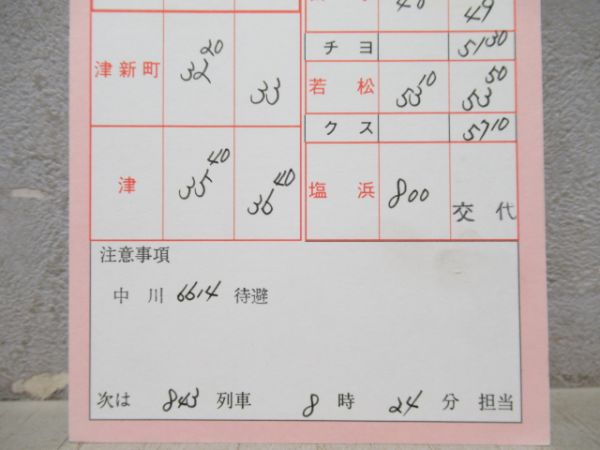 49
チヨ 51 30
津新町 32 20 33
若松 53 10 53 50
クス 57 10
津 35 40 36 40
塩浜 800 交代
注意事項
中川 6614 待避
次は 843 列車 8 時 24 分 担当